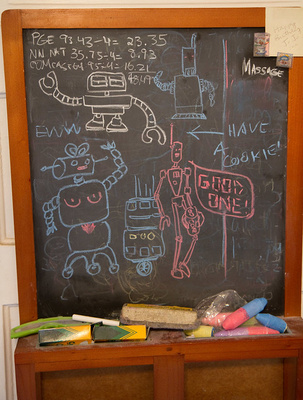 PGE 93.43-4= 23.35
NN NAT 35.75-4= 8.93
COMCAST 64.85-4= 16.21
48.49
MASSAGE
EWW
HAVE
A
COOKIE!
GOOD
ONE!